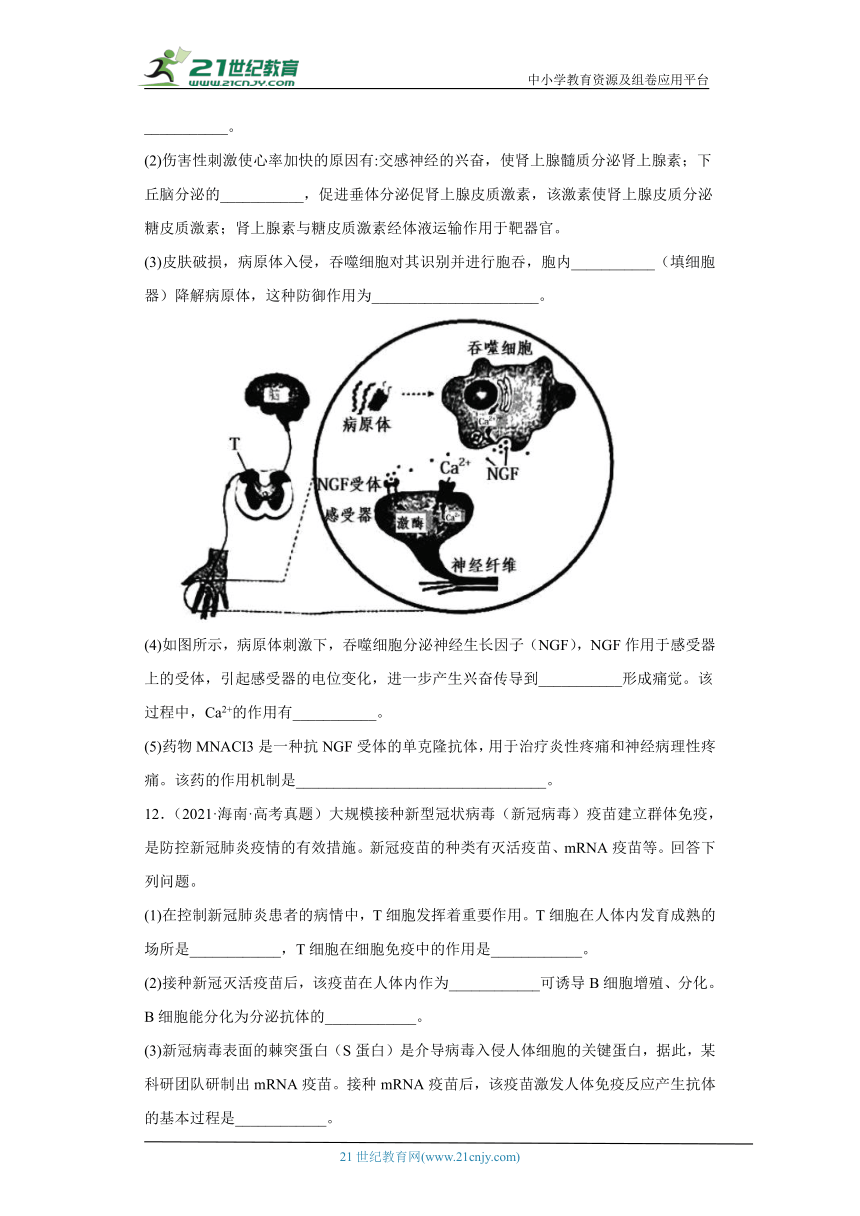 21世纪教育
WWW.21CNJY.COM
中小学教育资源及组卷应用平台
___________。
(2)伤害性刺激使心率加快的原因有:交感神经的兴奋，使肾上腺髓质分泌肾上腺素；下
丘脑分泌的___________，促进垂体分泌促肾上腺皮质激素，该激素使肾上腺皮质分泌
糖皮质激素；肾上腺素与糖皮质激素经体液运输作用于靶器官。
(3)皮肤破损，病原体入侵，吞噬细胞对其识别并进行胞吞，胞内___________（填细胞
器）降解病原体，这种防御作用为______________________。
吞噬细胞
脑
病原体
Ca²⁺
T
Ca²⁺
NGF
NGF受体
感受器
激酶
Ca²⁺
神经纤维
(4)如图所示，病原体刺激下，吞噬细胞分泌神经生长因子（NGF），NGF作用于感受器
上的受体，引起感受器的电位变化，进一步产生兴奋传导到___________形成痛觉。该
过程中，Ca²⁺的作用有___________。
(5)药物MNACI3是一种抗NGF受体的单克隆抗体，用于治疗炎性疼痛和神经病理性疼
痛。该药的作用机制是_________________________________。
12．（2021·海南·高考真题）大规模接种新型冠状病毒（新冠病毒）疫苗建立群体免疫，
是防控新冠肺炎疫情的有效措施。新冠疫苗的种类有灭活疫苗、mRNA疫苗等。回答下
列问题。
(1)在控制新冠肺炎患者的病情中，T细胞发挥着重要作用。T细胞在人体内发育成熟的
场所是____________，T细胞在细胞免疫中的作用是____________。
(2)接种新冠灭活疫苗后，该疫苗在人体内作为____________可诱导B细胞增殖、分化。
B细胞能分化为分泌抗体的____________。
(3)新冠病毒表面的棘突蛋白（S蛋白）是介导病毒入侵人体细胞的关键蛋白，据此，某
科研团队研制出mRNA疫苗。接种mRNA疫苗后，该疫苗激发人体免疫反应产生抗体
的基本过程是____________。
21世纪教育网(www.21cnjy.com)